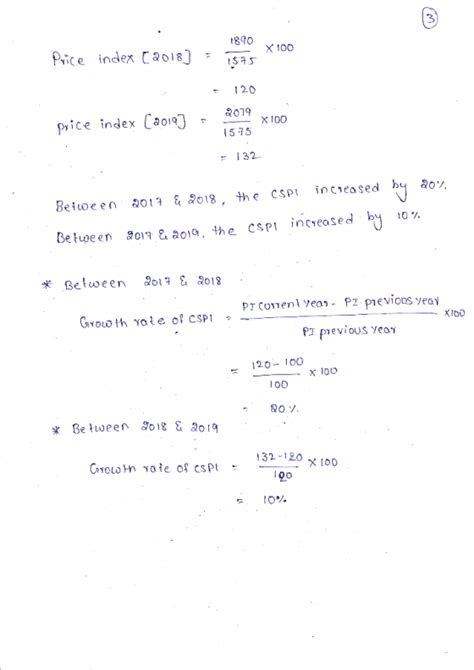 3
Price index [2018] = 1890/1575 × 100
= 120
Price index [2019] = 2079/1575 × 100
= 132
Between 2017 & 2018, the CSPI increased by 20%
Between 2017 & 2019, the CSPI increased by 10%
* Between 2017 & 2018
Growth rate of CSPI = PI current year - PI previous year / PI previous year × 100
= 120 - 100 / 100 × 100
= 20%
* Between 2018 & 2019
Growth rate of CSPI = 132 - 120 / 120 × 100
= 10%